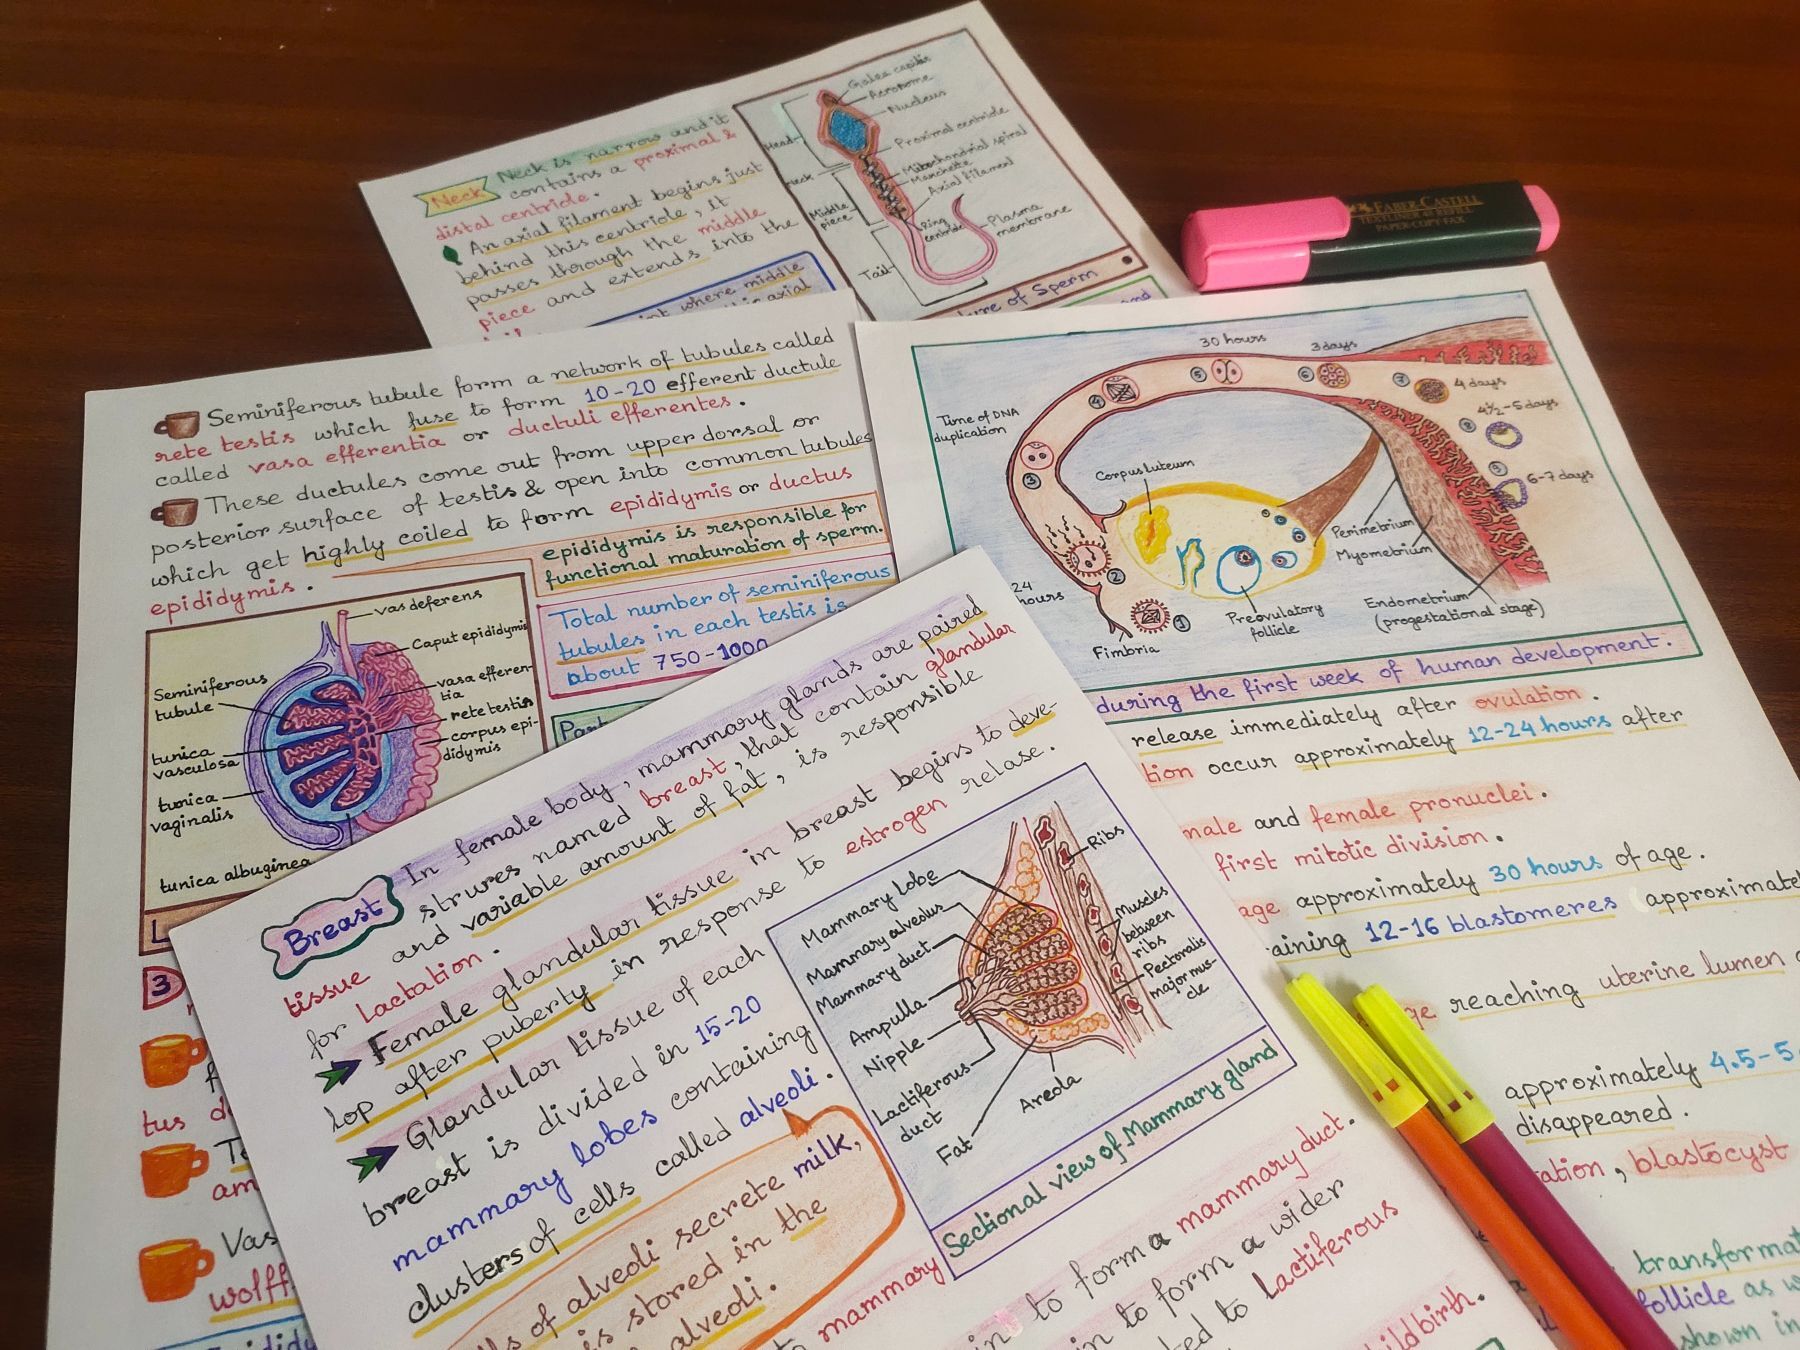 Neck Neck is narrow and it
contains a proximal &
distal centriole.
An axial filament begins just
behind this centriole, It
passes through the middle
piece and extends into the
where middle
axial
Galea capitis
Acrosome
Nucleus
Proximal centriole
Mitochondrial spiral
Manchette
Axial filament
Ring centriole
Plasma
membrane
Head
Neck
Middle
piece
Tail
of Sperm
FABER-CASTELL
TEXTLINER 48 REFILL
PAPER·COPY·FAX
Seminiferous tubule form a network of tubules called
rete testis which fuse to form 10-20 efferent ductule
called vasa efferentia or ductuli efferentes.
These ductules come out from upper dorsal or
posterior surface of testis & open into common tubules
which get highly coiled to form epididymis or ductus
epididymis.
epididymis is responsible for
functional maturation of sperm.
Total number of seminiferous
tubules in each testis is
about 750-1000
vas deferens
Caput epididymis
vasa efferen-
tia
rete testis
corpus epi-
didymis
Seminiferous
tubule
tunica
vasculosa
tunica
vaginalis
tunica albuginea
3
tus
am
Vas
wolff
30 hours
3 days
4 days
4½-5 days
6-7 days
Time of DNA
duplication
Corpus luteum
1
2
3
4
5
6
7
8
9
24
hours
Fimbria
Preovulatory
follicle
Perimetrium
Myometrium
Endometrium
(progestational stage)
during the first week of human development.
release immediately after ovulation.
tion occur approximately 12-24 hours after
male and female pronuclei.
first mitotic division.
age approximately 30 hours of age.
aining 12-16 blastomeres
reaching uterine lumen
approximately 4.5-5
disappeared.
ation, blastocyst
follicle as
shown in
Breast In female body, mammary glands are paired
strures named breast, that contain glandular
tissue and variable amount of fat, is responsible
for Lactation.
Female glandular tissue in breast begins to deve-
lop after puberty in response to estrogen relase.
Glandular tissue of each
breast is divided in 15-20
mammary lobes containing
clusters of cells called alveoli.
of alveoli secrete milk,
is stored in the
alveoli.
Mammary lobe
Mammary alveolus
Mammary duct
Ampulla
Nipple
Lactiferous
duct
Fat
Areola
Ribs
Muscles
between
ribs
Pectoralis
major mus-
cle
Sectional view of Mammary gland
to form a mammary duct.
mammary
in to form a wider
to Lactiferous
childbirth.